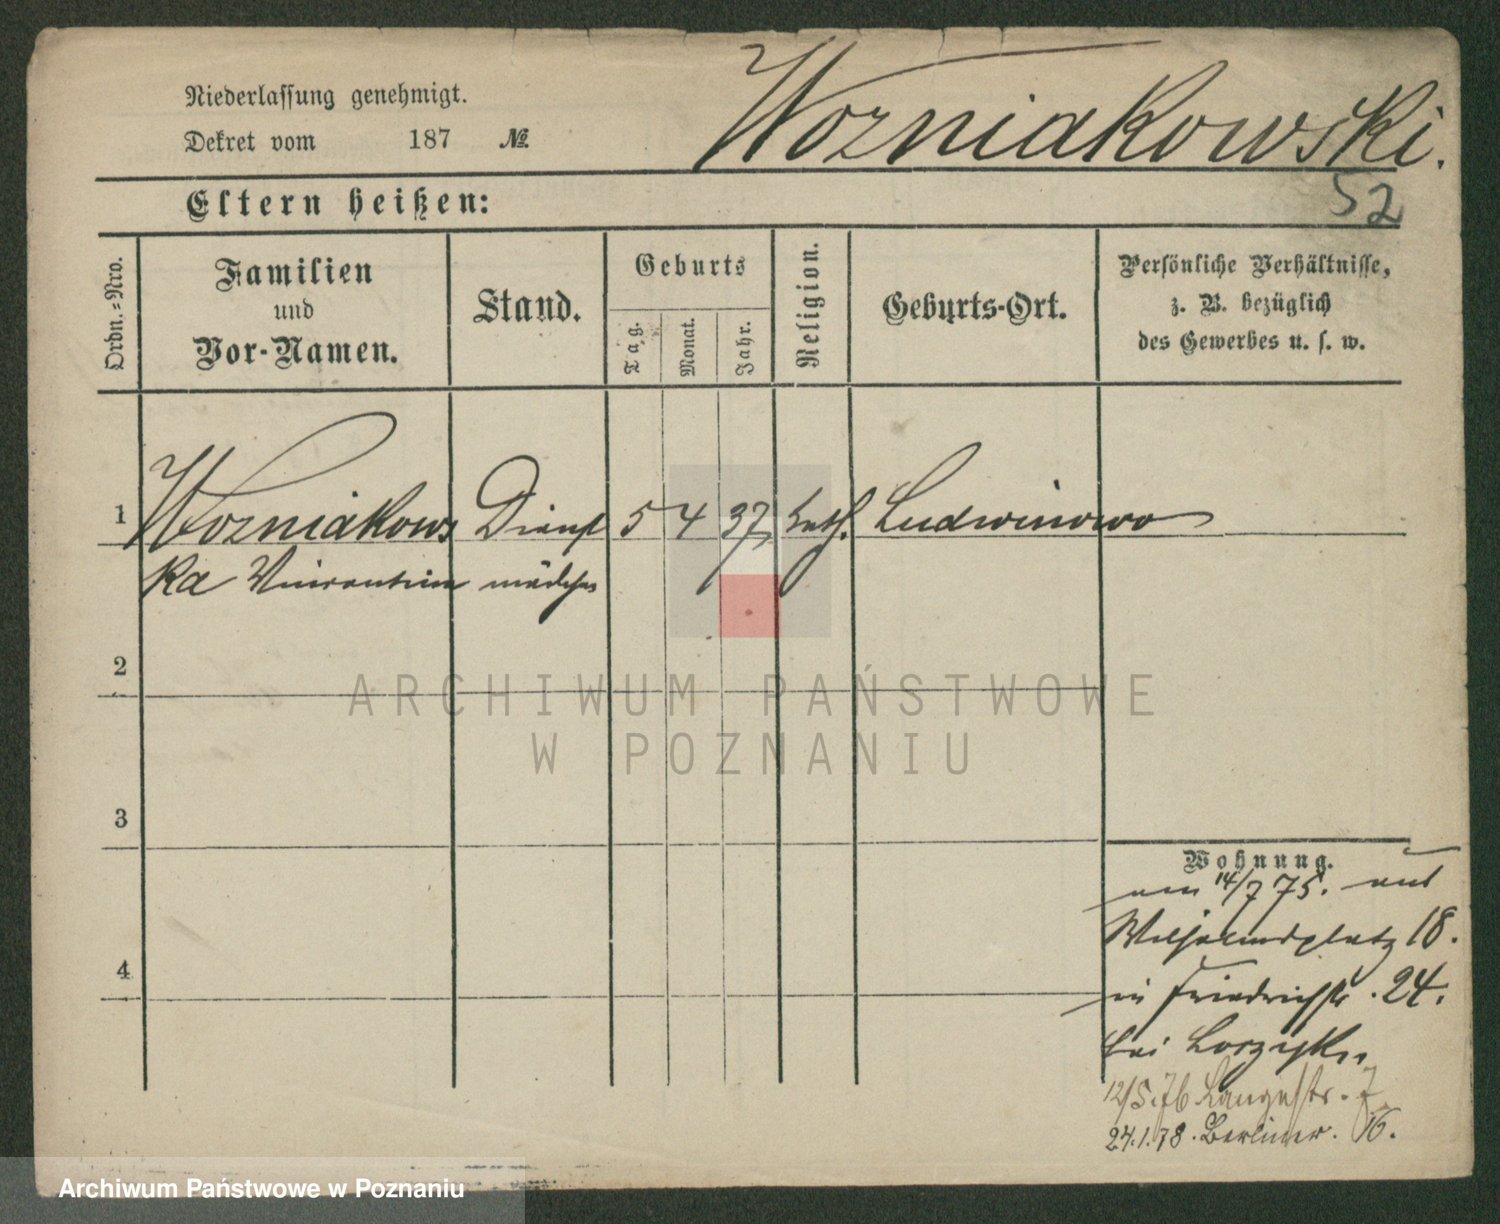 Niederlassung genehmigt.
Dekret vom 187 №
Wozniakowski.
52
Eltern heißen:
Ordn.-Nro.
Familien
und
Vor-Namen.
Stand.
Geburts
Tag.
Monat.
Jahr.
Religion.
Geburts-Ort.
Persönliche Verhältnisse,
z. B. bezüglich
des Gewerbes u. s. w.
1 Wozniakows Dienst 5 4 37 kath. Ludwinowo
ka mädchen
2
3
4
Wohnung.
am 14/7 75. aus
Wilhelmsplatz 18.
in Friedrichstr. 24.
bei
12/5.76 Langestr. 7
24.1.78. Berliner. 16.
ARCHIWUM PAŃSTWOWE
W POZNANIU
Archiwum Państwowe w Poznaniu